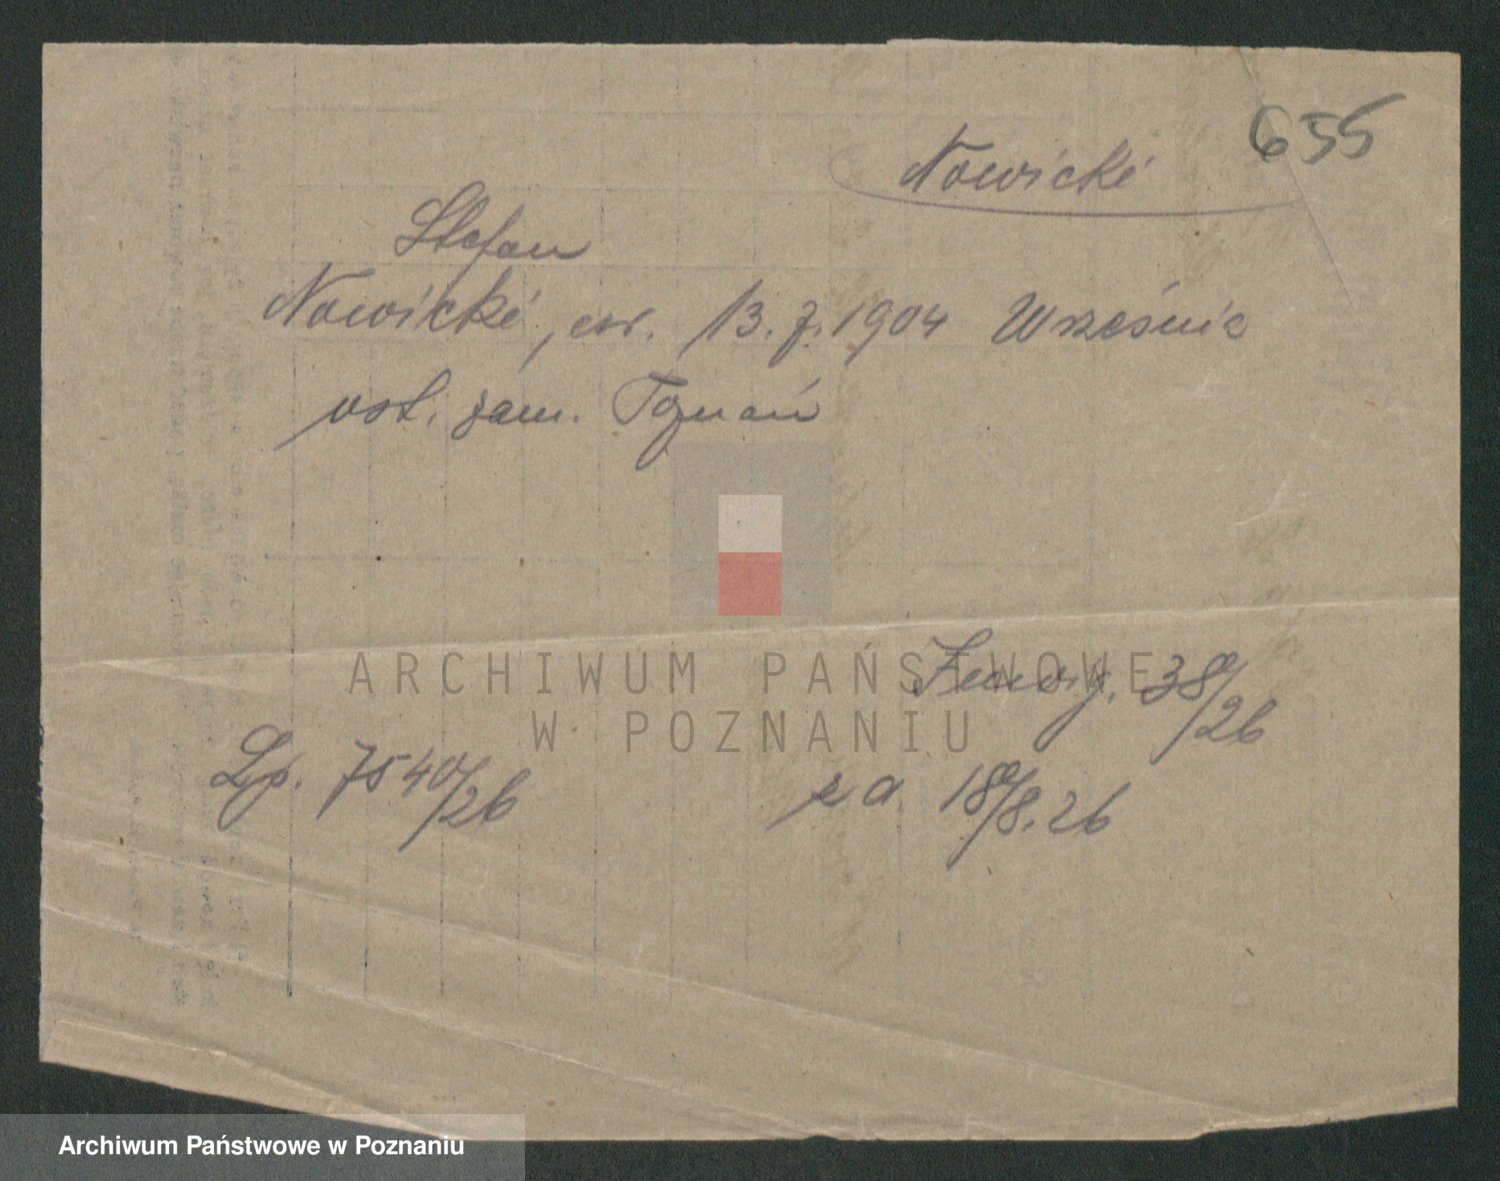 655
Nowicki
Stefan
Nowicki, ur. 13.7.1904 Wrześnie
ost. zam. Poznań
ARCHIWUM PAŃSTWOWE
W POZNANIU
38/26
Lp. 7540/26
za 18/8.26
Archiwum Państwowe w Poznaniu